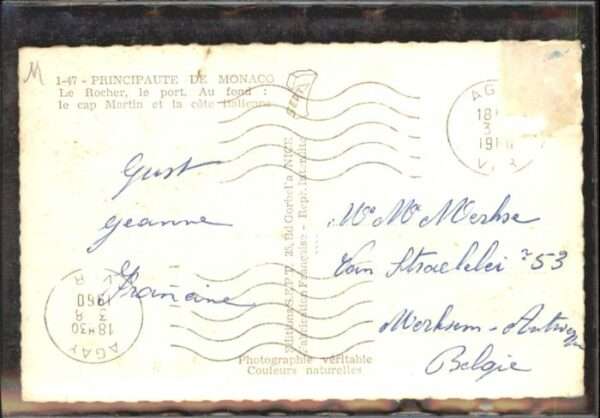 M
1-47 - PRINCIPAUTE DE MONACO
Le Rocher, le port. Au fond :
le cap Martin et la côte italienne
Gust
Jeanne
Francine
AGAY
18H30
3
1960
VAR
Editions S.E.P.T. 25, Bd Gorbella NICE
Fabrication Française - Repr. Interdite
AGAY
18
3
19
VAR
Merkse
Van
53
Merksem - Antwerpen
Belgie
Photographie véritable
Couleurs naturelles